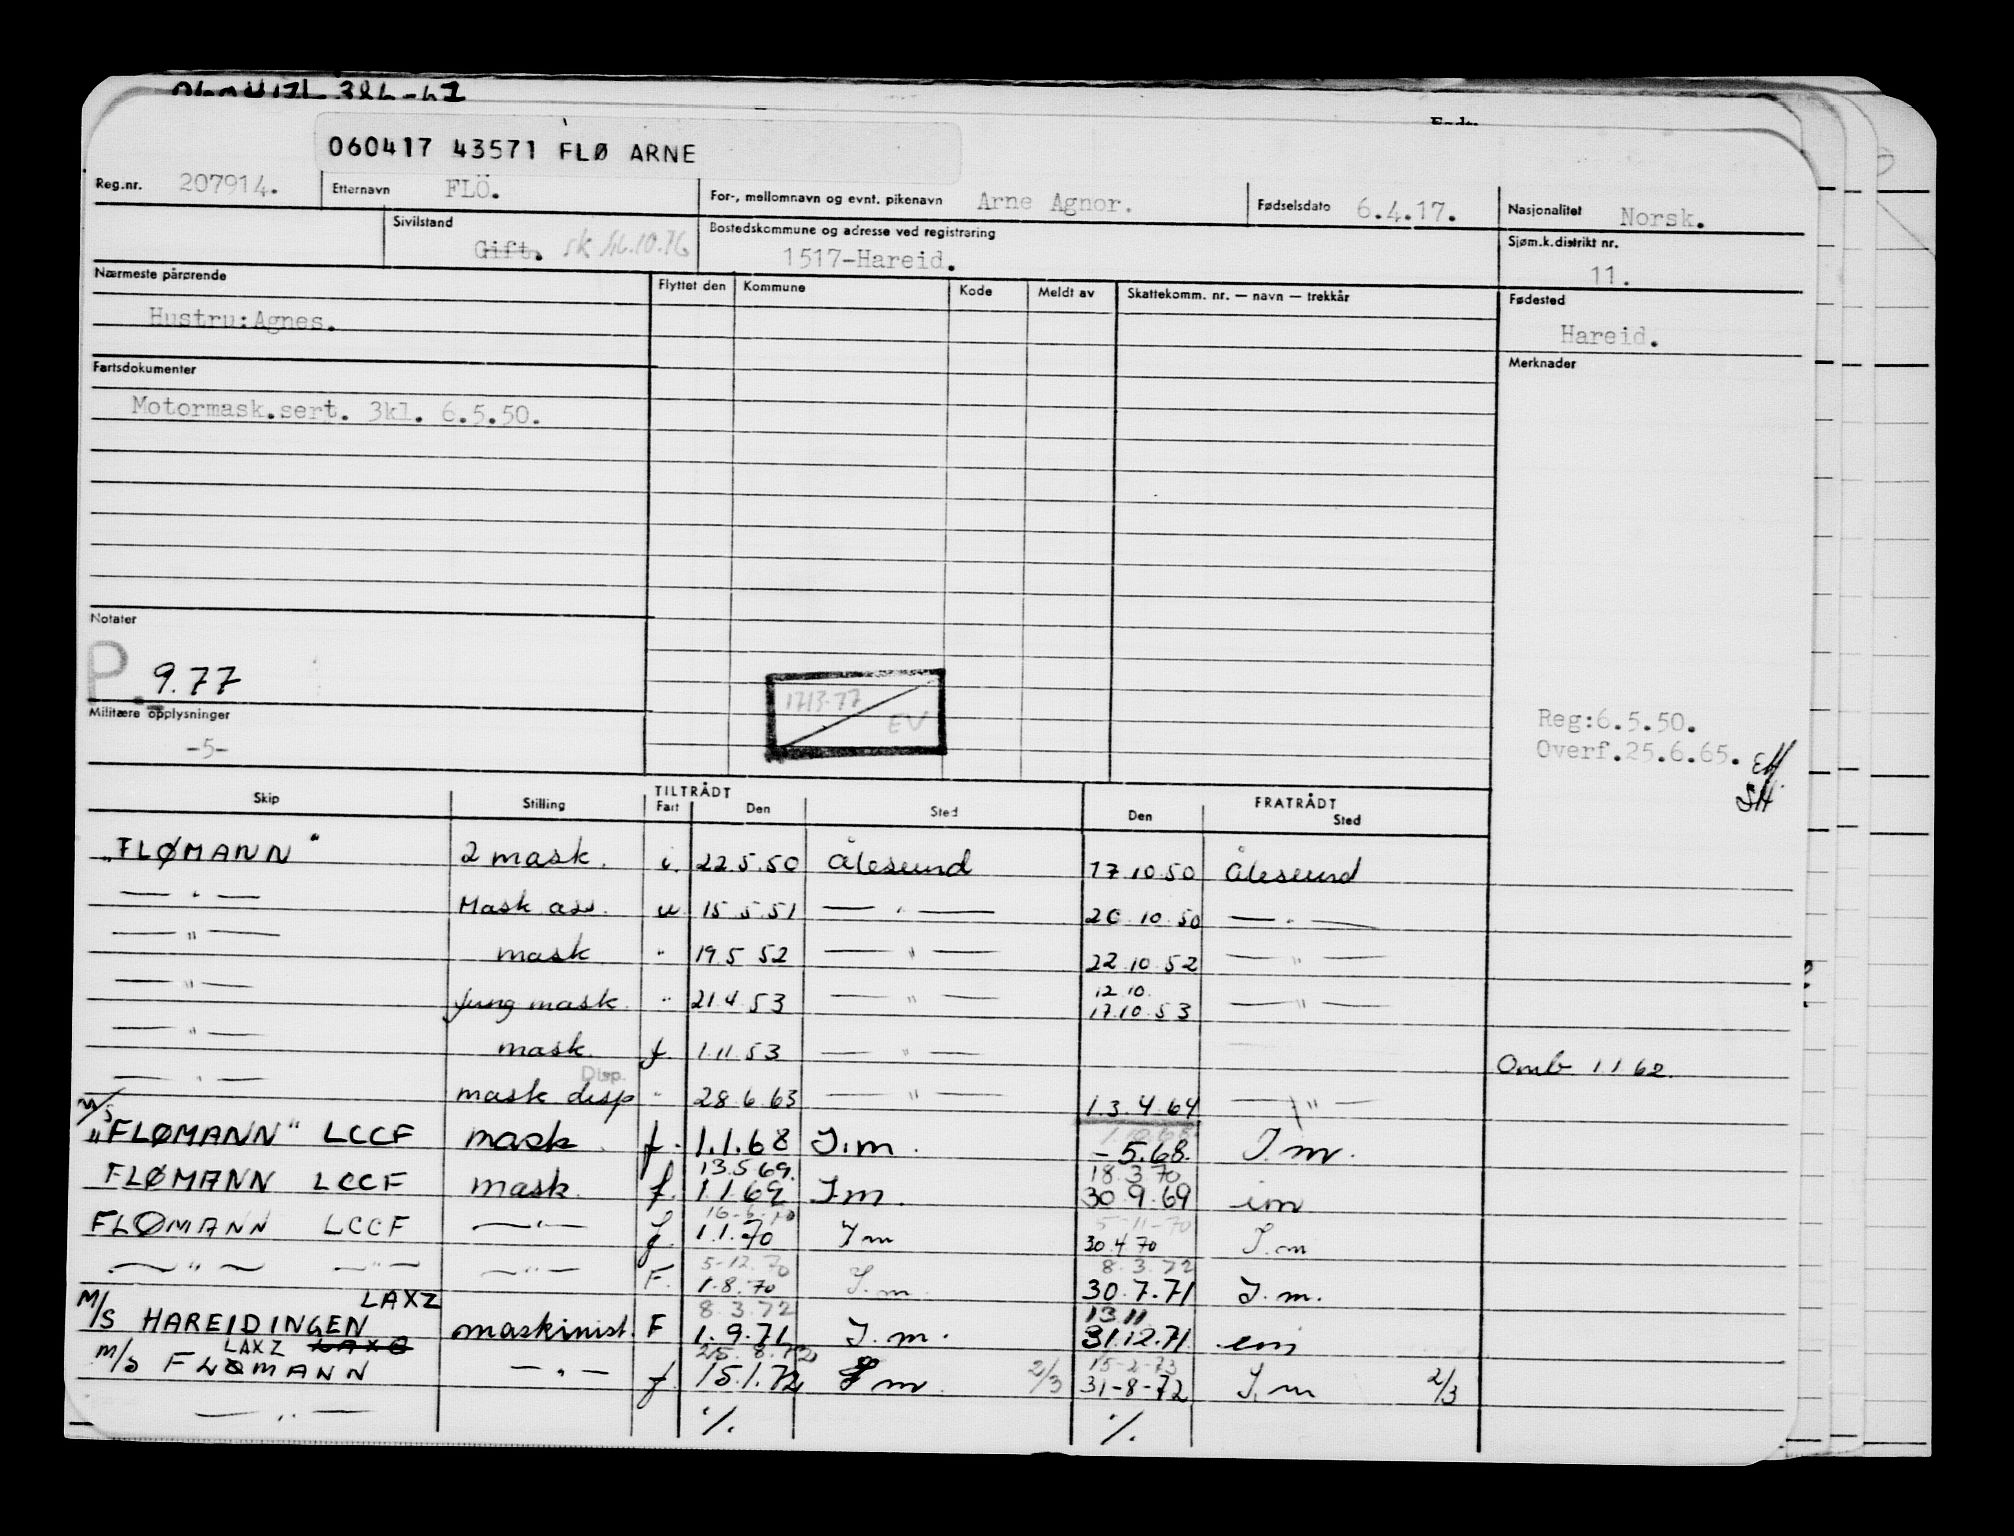 060417 43571 FLØ ARNE
Reg.nr. 207914. Etternavn FLÖ. For-, mellomnavn og evnt. pikenavn Arne Agnor. Fødselsdato 6.4.17. Nasjonalitet Norsk.
Sivilstand Gift. Bostedskommune og adresse ved registrering 1517-Hareid. Sjøm.k.distrikt nr. 11.
Nærmeste pårørende Flyttet den Kommune Kode Meldt av Skattekomm. nr. — navn — trekkår Fødested
Hustru:Agnes. Hareid.
Fartsdokumenter Merknader
Motormask.sert. 3kl. 6.5.50.
Notater
P. 9.77
1713.77 EV
Militære opplysninger
-5-
Reg:6.5.50.
Overf.25.6.65.
TILTRÅDT FRATRÅDT
Skip Stilling Fart Den Sted Den Sted
"FLØMANN" 2 mask. i. 22.5.50 Ålesund 17.10.50 Ålesund
— " — Mask ass. u 15 5 51 — " — 20 10 50 — " —
— " — mask " 19 5 52 — " — 22 10 52 — " —
12 10.
— " — jung mask. " 21 4 53 — " — 17 10 53 — " —
— " — mask. f. 1 11 53 — " — Omb 1 1 62.
Disp.
— " — mask disp " 28 6 63 — " — 1.3.4.64 — " —
M/S "FLØMANN" LCCF mask. f. 1.1.68 I.m. -5.68. I.m.
13.5 69. 18.3 70
FLØMANN LCCF mask. f. 1.1.69 Im. 30.9.69 im
5-11-70
FLØMANN LCCF — " — f. 1.1.70 Im 30.4 70 I.m
5-12.70 8.3.72
— " — — " — — " — F. 1.8.70 I.m. 30.7.71 I.m.
LAXZ 8 3.72 13.11
M/S HAREIDINGEN maskinist. F 1.9.71 I.m. 31.12.71
LAXZ 15-2-73
M/S FLØMANN — " — f 15.1.72 I m 2/3 31-8-72 I.m 2/3
— " — ./. ./.